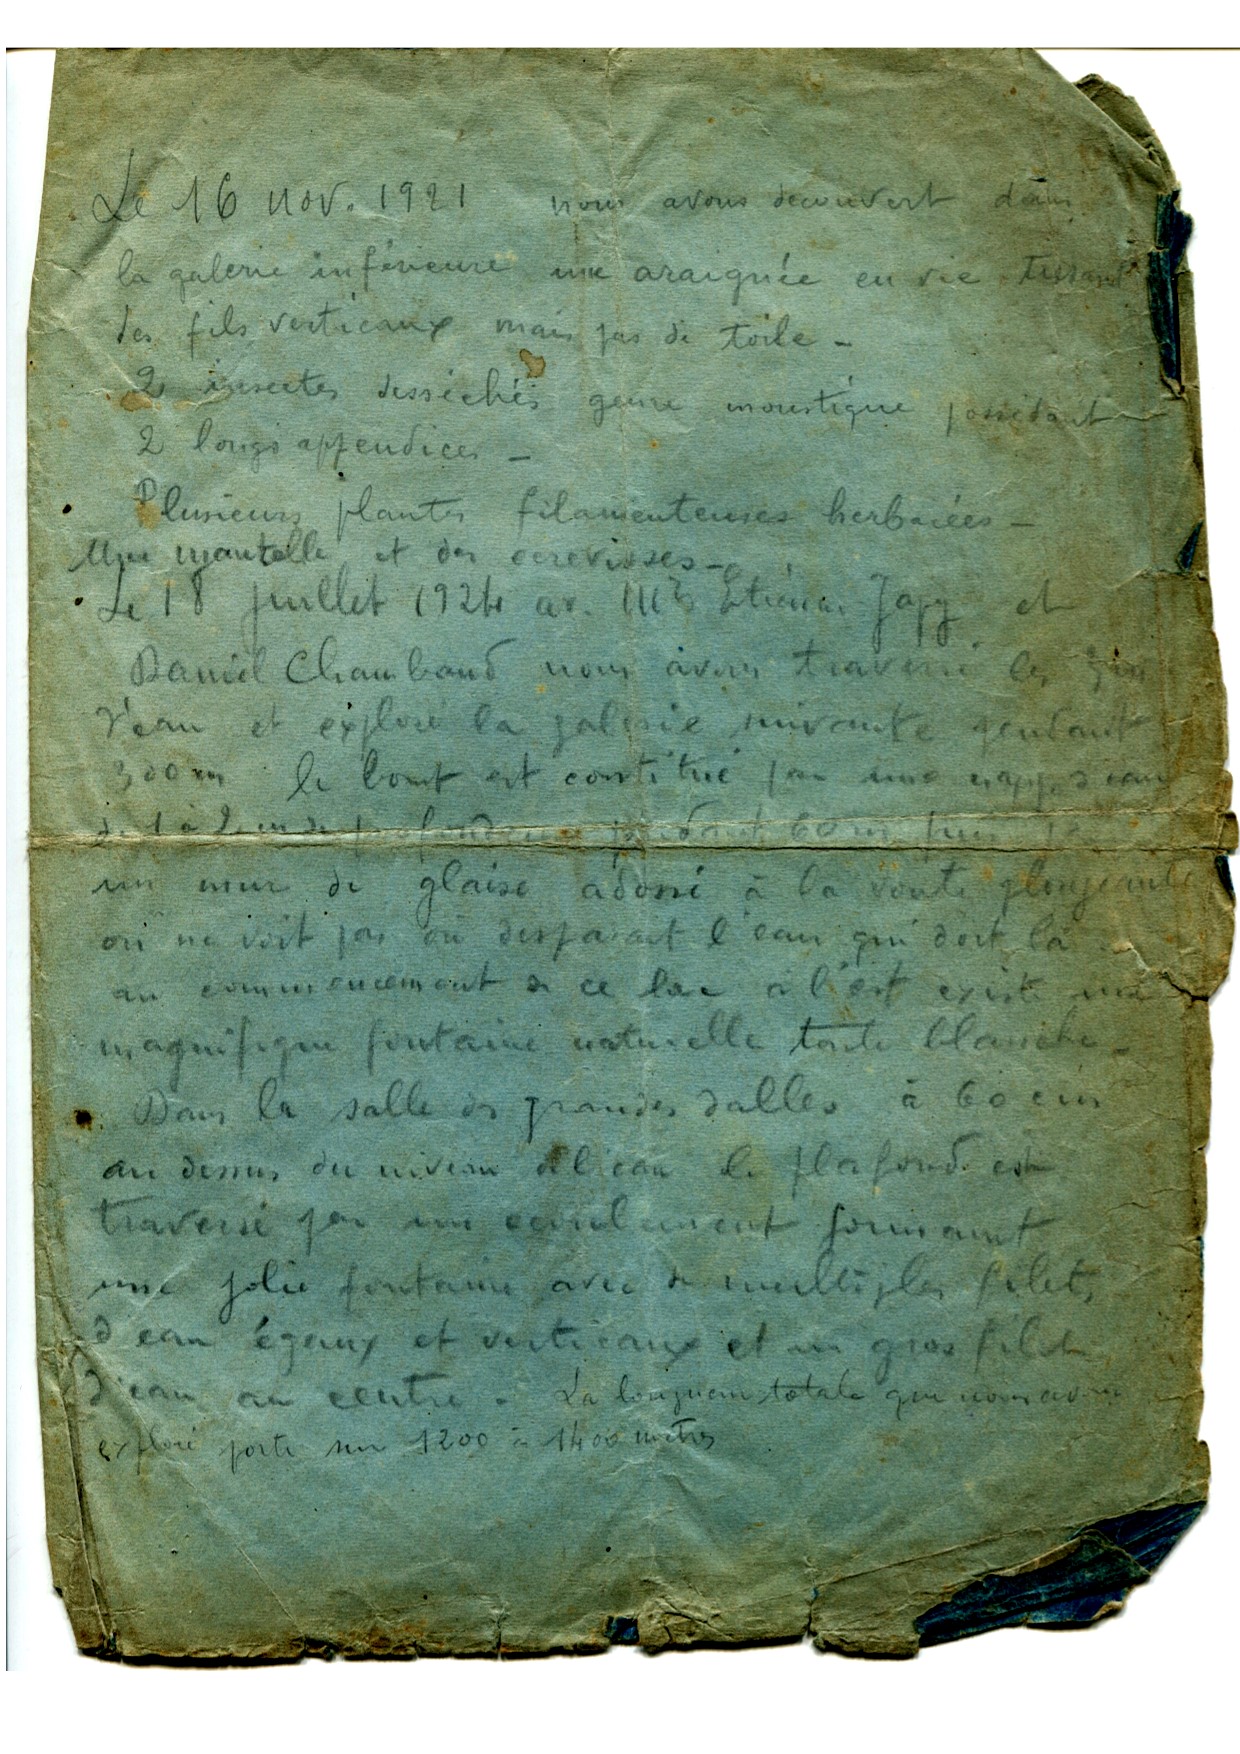 Le 16 nov. 1921 nous avons decouvert dans
la galerie inférieure une araignée en vie tissant
des fils verticaux mais pas de toile -
2 insectes desséchés genre moustique possédant
2 longs appendices -
Plusieurs plantes filamenteuses herbacées -
Une et des ecrevisses -
Le 18 juillet 1924 av. Mrs Etienne Japy et
Daniel Chambaud nous avons traversé les
d'eau et exploré la galerie suivante pendant
300 m le bout est constitué par une nappe d'eau
de 1 à 2 m de profondeur pendant 60 m puis
un mur de glaise adossé à la voute plongeante
on ne voit pas où disparait l'eau qui doit là
au commencement de ce lac à l'est existe une
magnifique fontaine naturelle toute blanche -
Dans la salle des grandes dalles à 60 cm
au dessus du niveau de l'eau le plafond est
traversé par un ecoulement formant
une jolie fontaine avec de multiples filets
d'eau égaux et verticaux et un gros filet
d'eau au centre - La longueur totale que nous avons
exploré porte sur 1200 à 1400 mètres